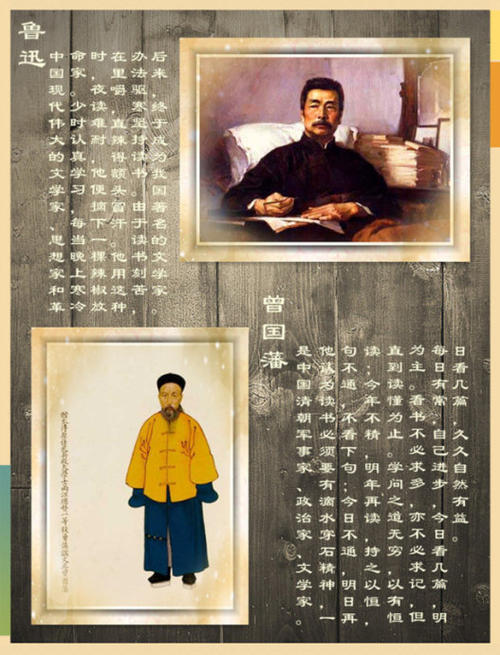 鲁迅
中国现代伟大的文学家、思想家和革
命家。少时认真学习，每当晚上寒冷
时，夜读难耐，他便摘下一棵辣椒放
在里嚼，直辣得额头冒汗。他用这种
办法驱寒坚持读书。由于读书刻苦，
后来，终于成为我国著名的文学家。
曾国藩
是中国清朝军事家、政治家、文学家。
他认为读书必须要有滴水穿石精神，一
句不通，不看下句；今日不通，明日再
读；今年不精，明年再读，持之以恒，
直到读懂为止。学问之道无穷，以有恒
为主。看书不必求多，亦不必求记，但
每日有常，自己进步，今日看几篇，明
日看几篇，久久自然有益。